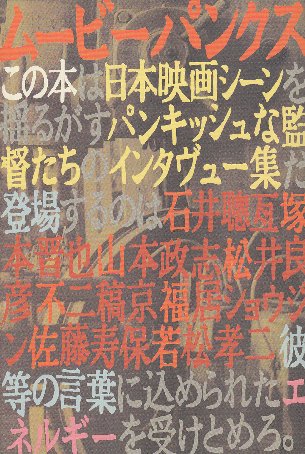 ムービーパンクス
この本は日本映画シーンを
揺るがすパンキッシュな監
督たちのインタヴュー集だ
登場するのは石井聰亙塚
本晋也山本政志松井良
彦不二稿京福居ショウジ
ン佐藤寿保若松孝二彼
等の言葉に込められたエ
ネルギーを受けとめろ。